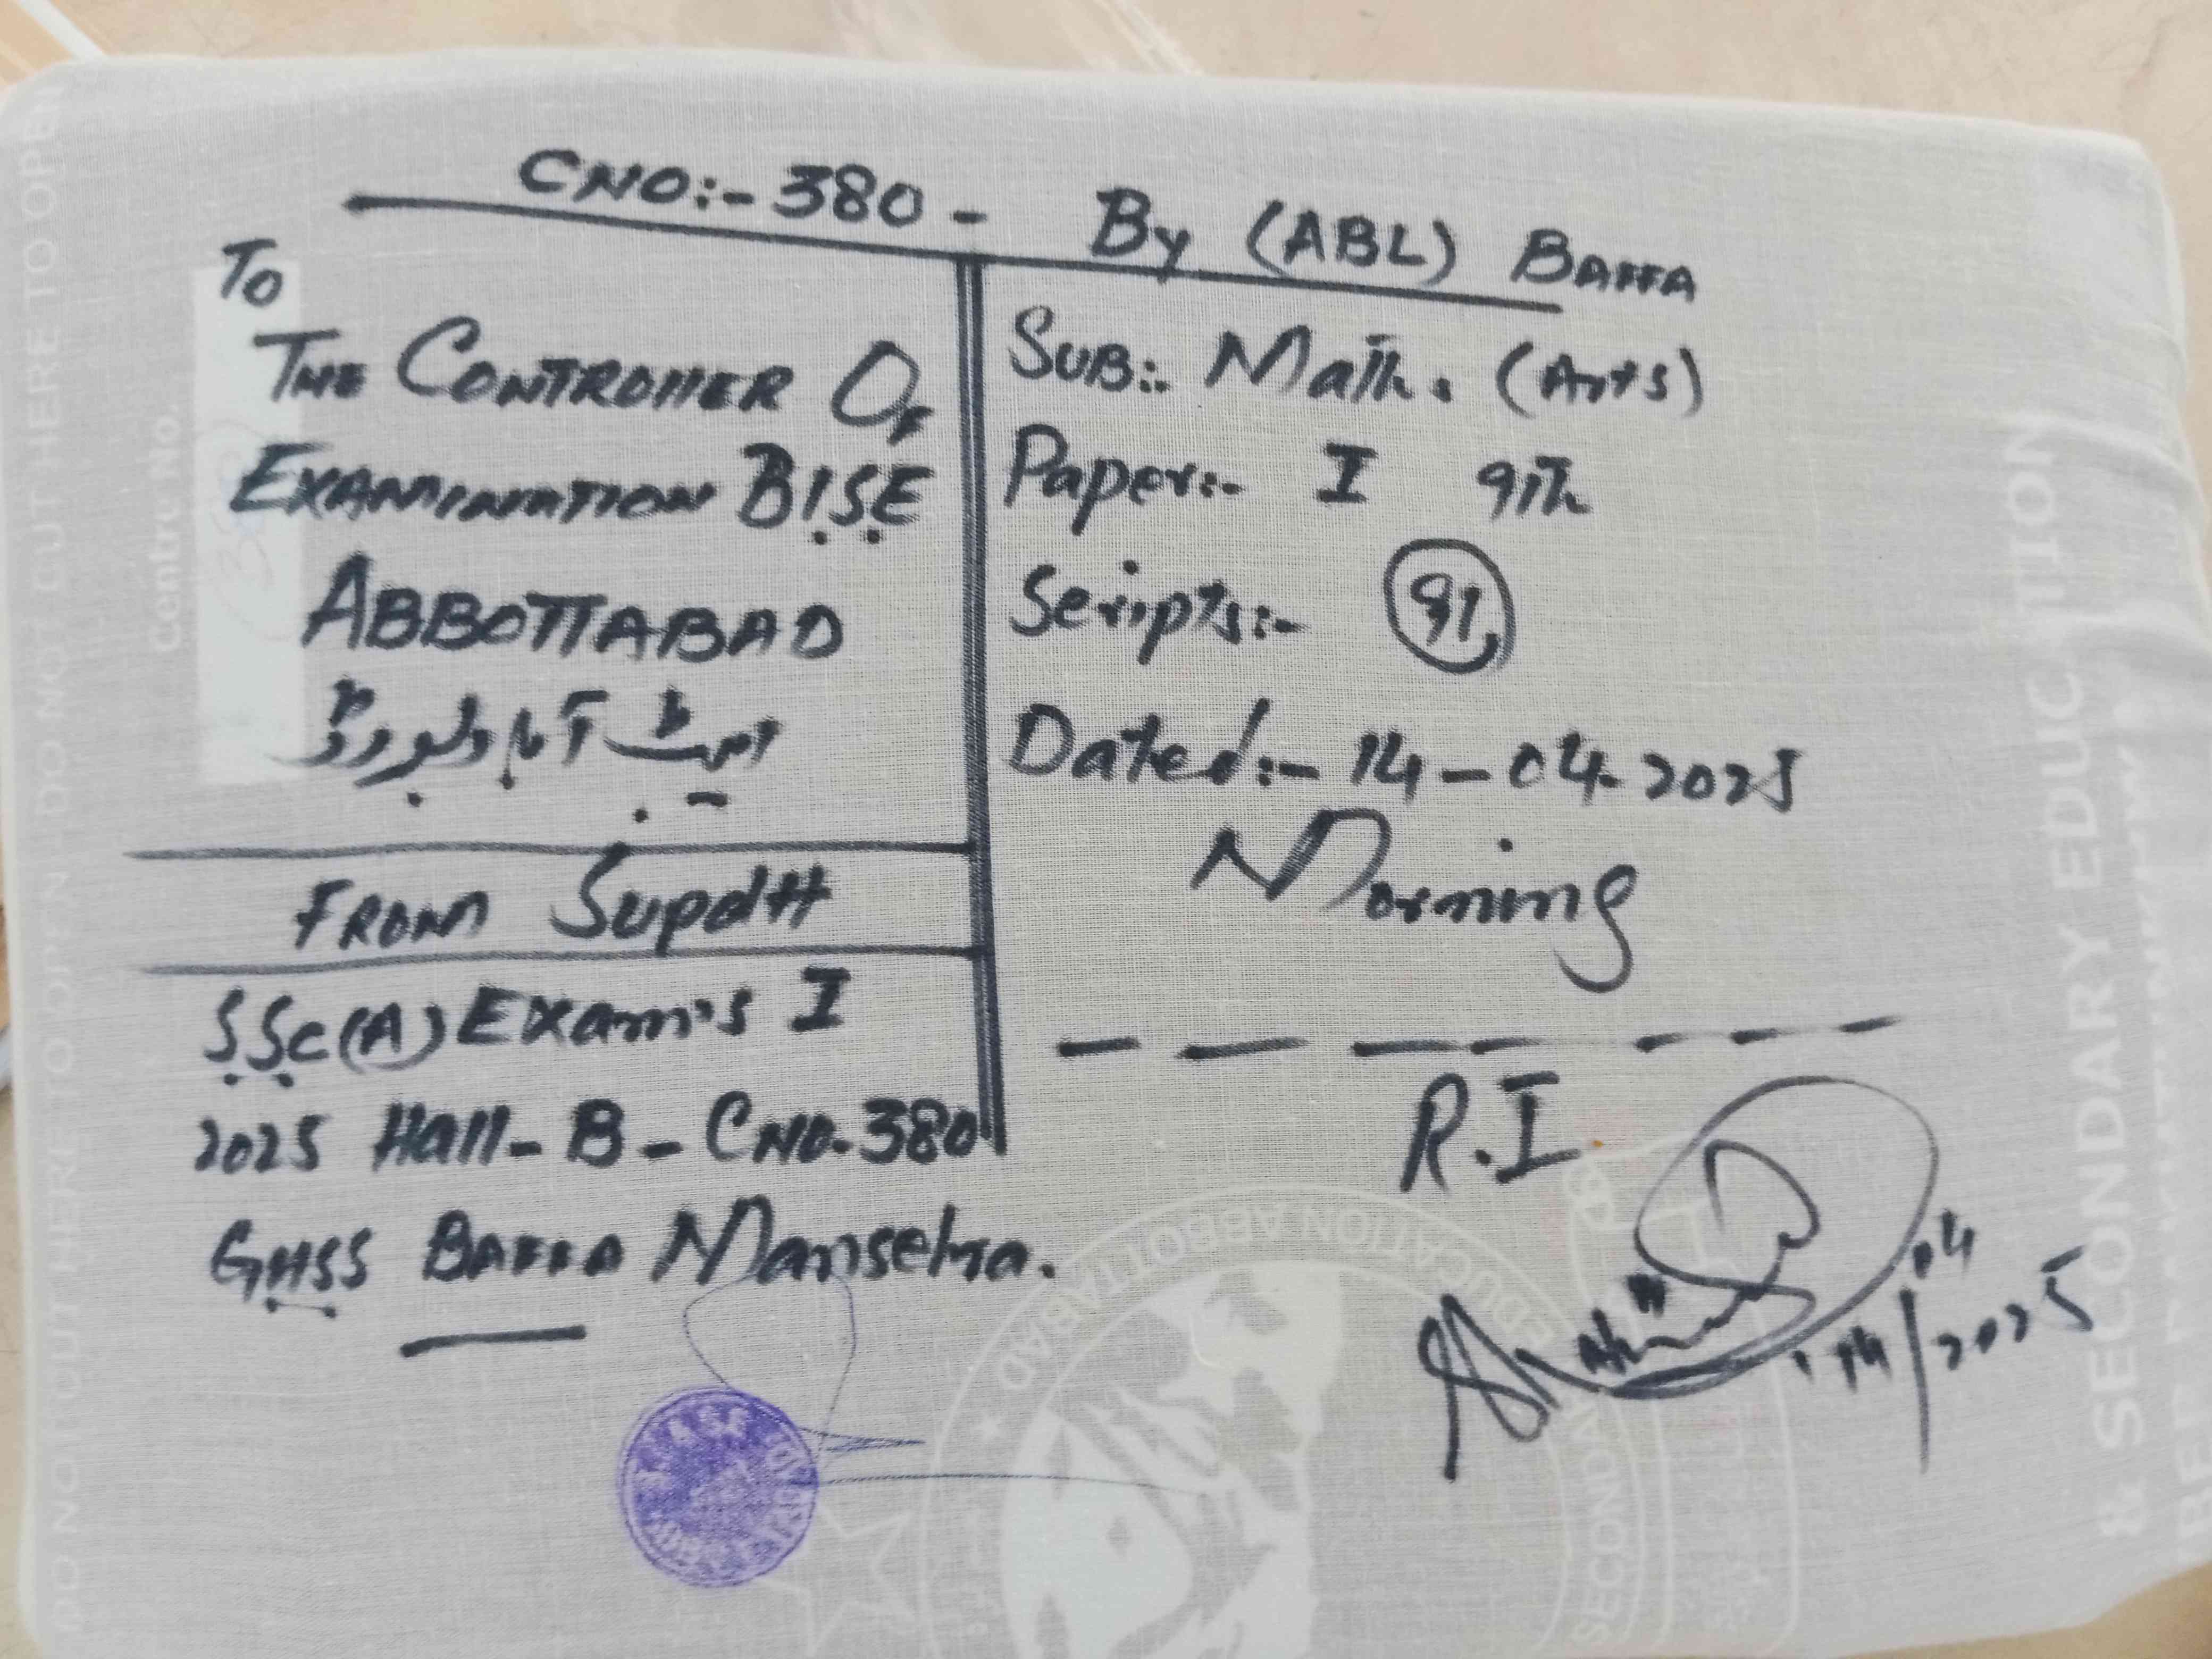 CNO:- 380 - By (ABL) BAFFA
To
THE CONTROLLER OF
EXAMINATION B.I.S.E
ABBOTTABAD
ایبٹ آباد بورڈ
FROM Supdtt
S.S.C(A) Exam's I
2025 Hall-B-CNO.380
G.H.S.S BAFFA Mansehra.
SUB:. Math. (Arts)
Paper:- I 9th
Scripts:- 91
Dated:- 14-04-2025
Morning
R.I
14/04/2025
DO NOT CUT HERE TO OPEN DO NOT CUT HERE TO OPEN
Centre No.
& SECONDARY EDUCATION
EDUCATION ABBOTTABAD
SECONDARY